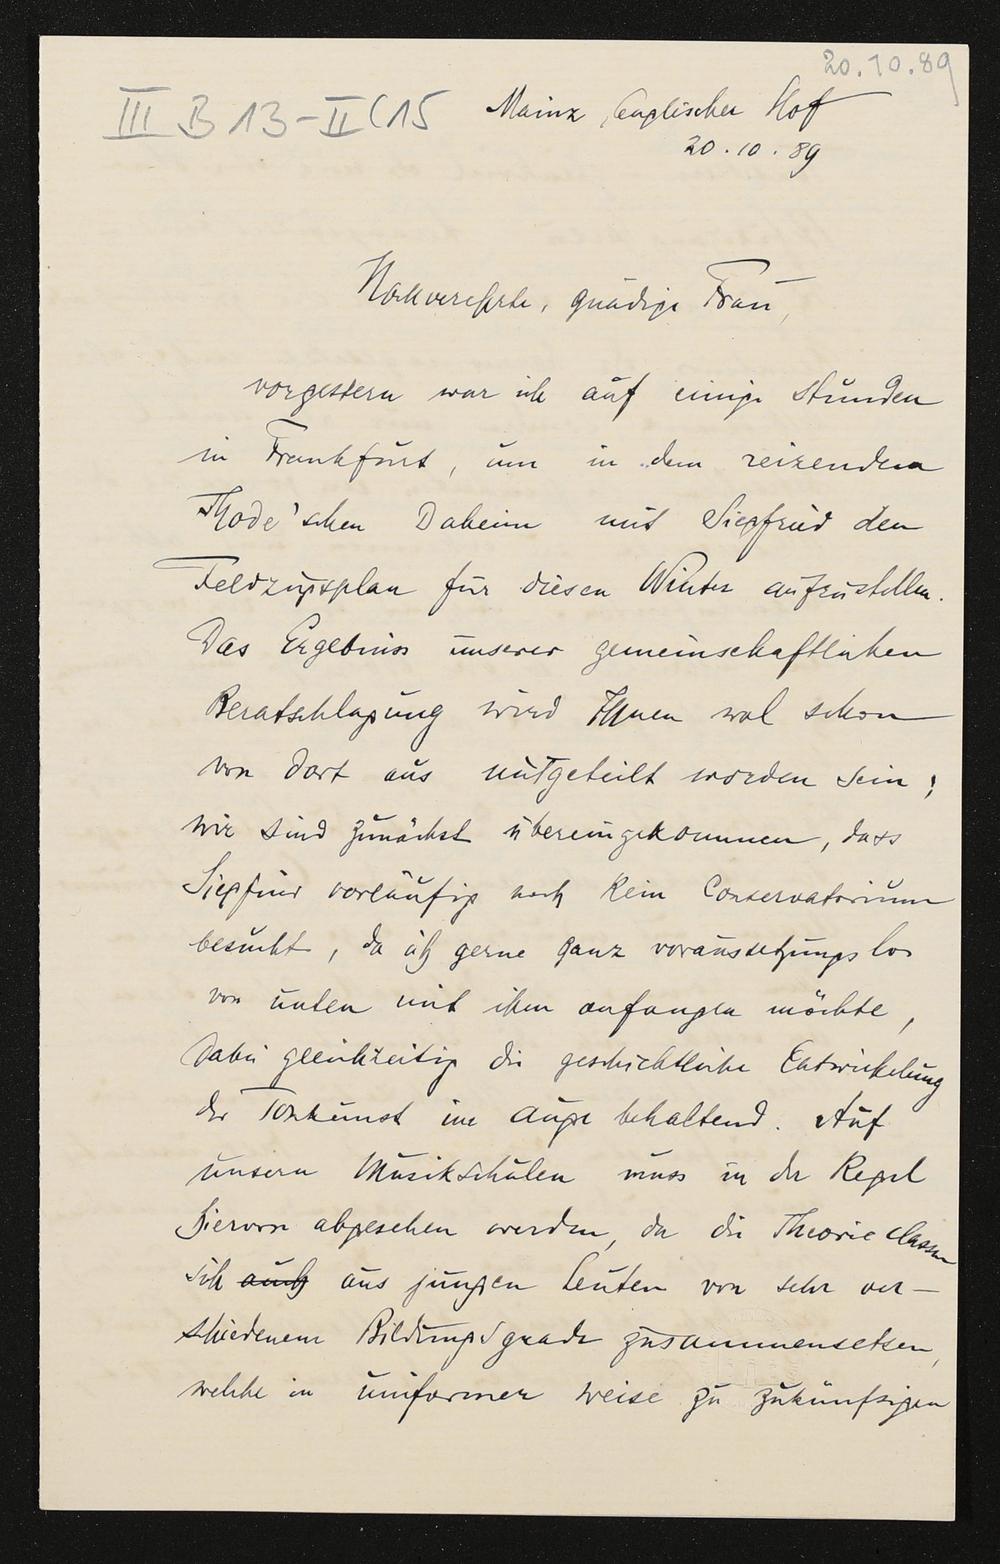 20.10.89
III B 13-II C 15
Mainz, Englischer Hof
20.10.89
Hochverehrte, gnädige Frau,
vorgestern war ich auf einige Stunden
in Frankfurt, um in dem reizenden
Thode'schen Daheim mit Siegfried den
Feldzugsplan für diesen Winter aufzustellen.
Das Ergebniss unserer gemeinschaftlichen
Beratschlagung wird Ihnen wol schon
von dort aus mitgeteilt worden sein;
wir sind zunächst übereingekommen, dass
Siegfried vorläufig noch kein Conservatorium
besucht, da ich gerne ganz voraussetzungslos
von unten mit ihm anfangen möchte,
dabei gleichzeitig die geschichtliche Entwickelung
der Tonkunst im Auge behaltend. Auf
unsern Musikschulen muss in der Regel
hiervon abgesehen werden, da die Theorieclassen
sich auch aus jungen Leuten von sehr ver-
schiedenem Bildungsgrade zusammensetzen,
welche in uniformer Weise zu zukünftigen